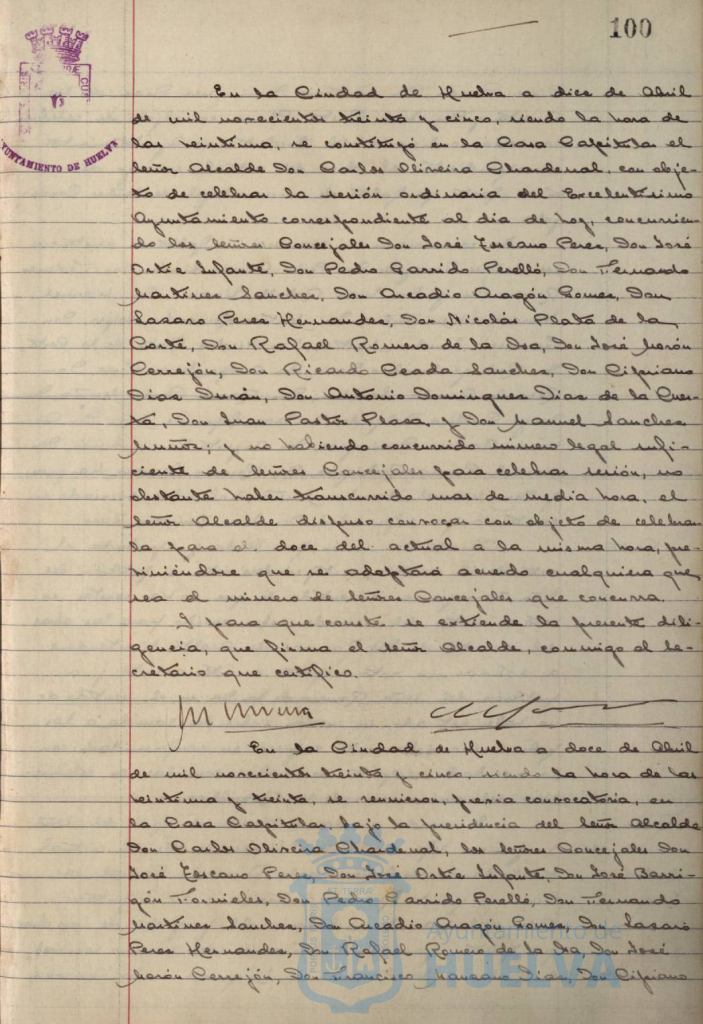 100
AYUNTAMIENTO DE HUELVA
En la Ciudad de Huelva a diez de Abril
de mil novecientos treinta y cinco, siendo la hora de
las veintiuna, se constituyó en la Casa Capitular el
Señor Alcalde Don Carlos Oliveira Chardenal, con obje-
to de celebrar la sesión ordinaria del Excelentísimo
Ayuntamiento correspondiente al día de hoy, concurrien-
do los señores Concejales Don José Toscano Perez, Don José
Ortiz Infante, Don Pedro Garrido Perelló, Don Fernando
Martinez Sanchez, Don Arcadio Aragón Gomez, Don
Lazaro Perez Hernandez, Don Nicolás Plata de la
Corte, Don Rafael Romero de la Isa, Don José Morón
Cerrejón, Don Ricardo Ceada Sanchez, Don Cipriano
Diaz Durán, Don Antonio Dominguez Diaz de la Cues-
ta, Don Juan Pastor Plaza, y Don Manuel Sanchez
Muñoz; y no habiendo concurrido número legal sufi-
ciente de señores Concejales para celebrar sesión, no
obstante haber transcurrido mas de media hora, el
señor Alcalde dispuso convocar con objeto de celebrar
la para el doce del actual a la misma hora, pre-
viniéndose que se adoptará acuerdo cualquiera que
sea el número de señores Concejales que concurra.
Y para que conste se extiende la presente dili-
gencia, que firma el señor Alcalde, conmigo el Se-
cretario que certifico.
En la Ciudad de Huelva a doce de Abril
de mil novecientos treinta y cinco, siendo la hora de las
veintiuna y treinta, se reunieron, previa convocatoria, en
la Casa Capitular, bajo la presidencia del Señor Alcalde
Don Carlos Oliveira Chardenal, los señores Concejales Don
José Toscano Perez, Don José Ortiz Infante, Don José Barri-
gón Fornieles, Don Pedro Garrido Perelló, Don Fernando
Martinez Sanchez, Don Arcadio Aragón Gomez, Don Lazaro
Perez Hernandez, Don Rafael Romero de la Isa, Don José
Morón Cerrejón, Don Francisco Manzano Diaz, Don Cipriano
Ayuntamiento de
HUELVA